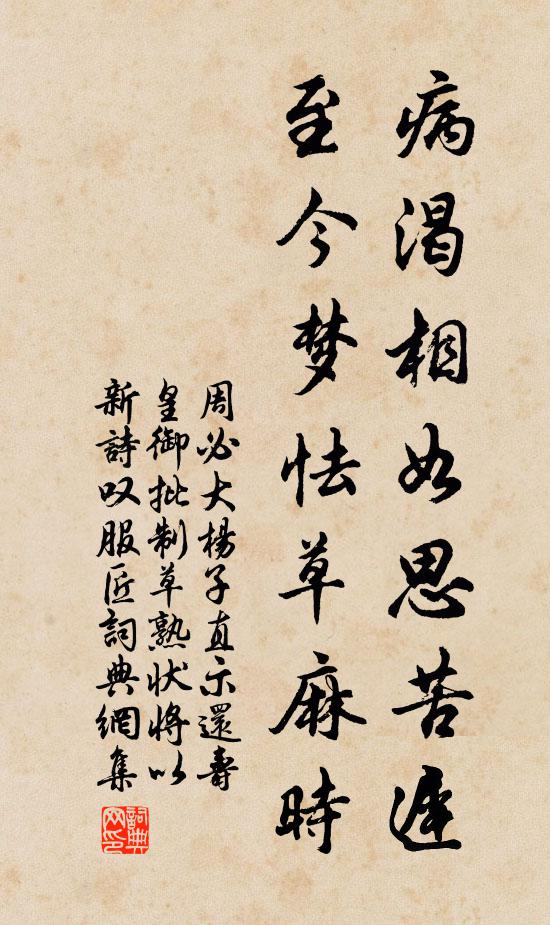 病渴相如思苦遲
至今梦怯草麻時
周必大楊子直示還壽
皇御批制草熟状將以
新詩叹服匠詞典網集
詞典
网印